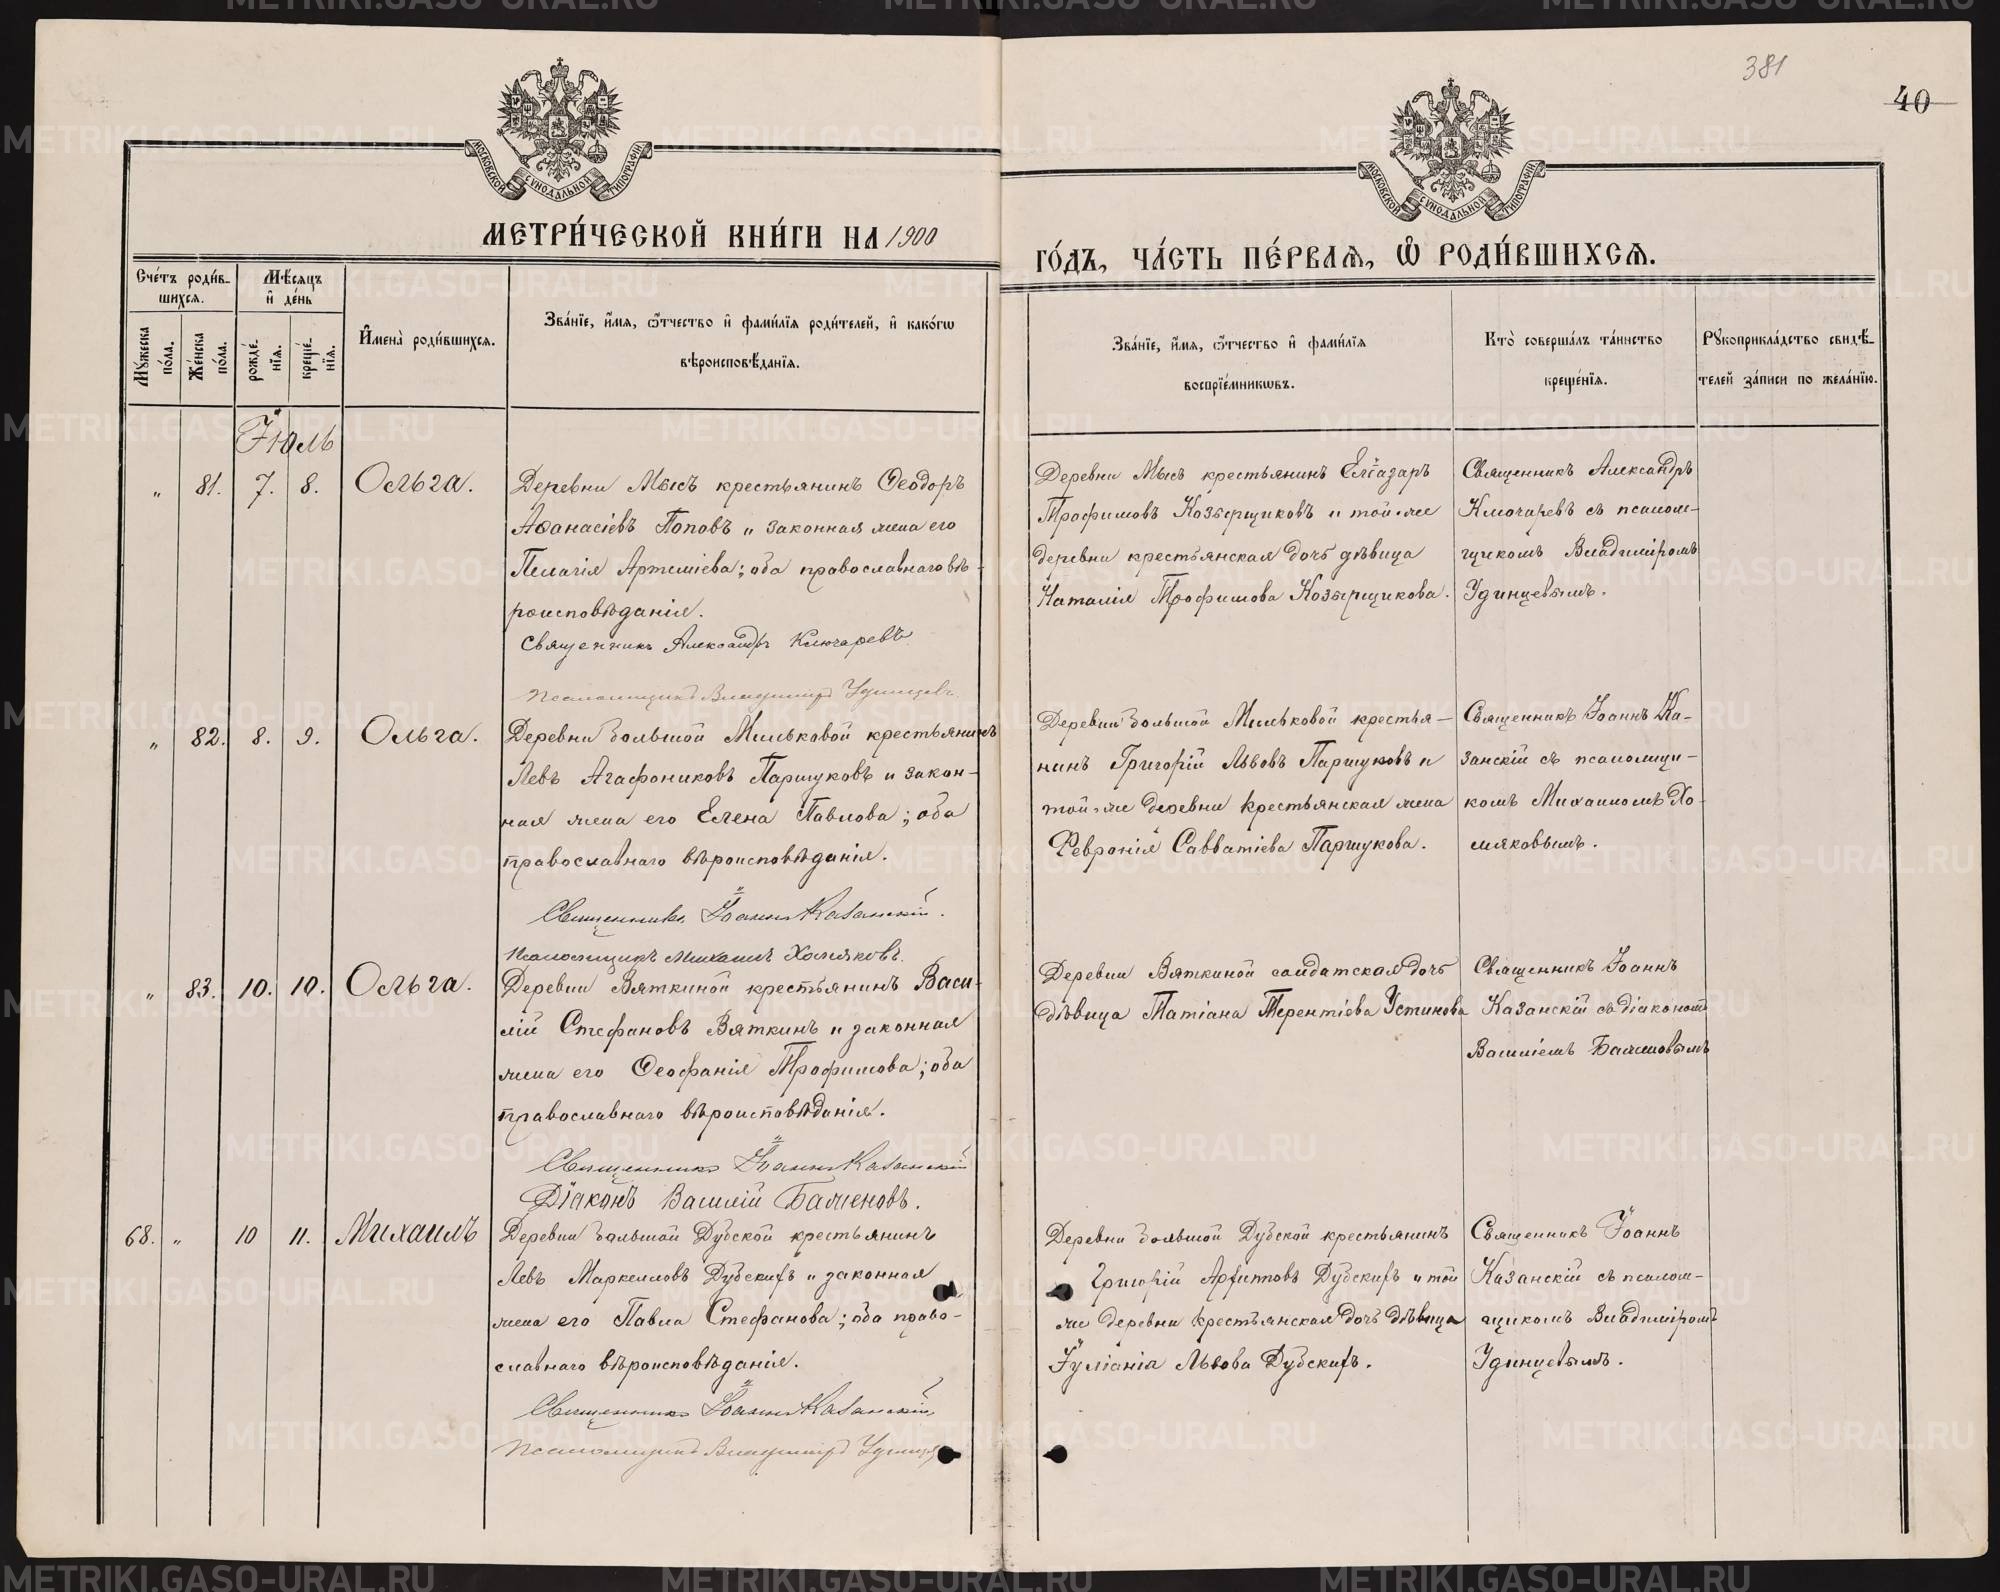 381
40
МОСКОВСКОЙ СѴНОДАЛЬНОЙ ТИПОГРАФІИ.
МОСКОВСКОЙ СѴНОДАЛЬНОЙ ТИПОГРАФІИ.
МЕТРИ́ЧЕСКОЙ КНИ́ГИ НА 1900
ГО́ДЪ, ЧА́СТЬ ПЕ́РВАѦ, Ѽ РОДИ́ВШИХСѦ.
Сче́тъ роди́в-
шихсѧ.
Мѣ́сѧцъ
и҆ де́нь
Мꙋ́жеска по́ла.
Же́нска по́ла.
рожде́-
нїѧ.
креще́-
нїѧ.
И҆мена̀ роди́вшихсѧ.
Зва́нїе, и҆́мѧ, ѻ҆́тчество и҆ фами́лїѧ роди́телей, и҆ како́гѡ
вѣроисповѣ́данїѧ.
Зва́нїе, и҆́мѧ, ѻ҆́тчество и҆ фами́лїѧ
воспрїе́мникѡвъ.
Кто̀ соверша́лъ та́инство
креще́нїѧ.
Рꙋкоприкла́дство свидѣ́-
телей за́писи по жела́нїю.
Іюль
„ 81. 7. 8. Ольга.
Деревни Мысъ крестьянинъ Ѳеодоръ
Аѳанасіевъ Поповъ и законная жена его
Пелагія Артеміева; оба православнаго вѣ-
роисповѣданія.
Священникъ Александръ Ключаревъ
Псаломщикъ Владиміръ Удинцевъ.
Деревни Мысъ крестьянинъ Елеазаръ
Трофимовъ Козырщиковъ и той-же
деревни крестьянская дочь дѣвица
Наталія Трофимова Козырщикова.
Священникъ Александръ
Ключаревъ съ псалом-
щикомъ Владиміромъ
Удинцевымъ.
„ 82. 8. 9. Ольга.
Деревни Большой Мильковой крестьянинъ
Левъ Агафониковъ Паршуковъ и закон-
ная жена его Елена Павлова; оба
православнаго вѣроисповѣданія.
Священникъ Іоаннъ Казанскій.
Псаломщикъ Михаилъ Холяковъ.
Деревни Большой Мильковой крестья-
нинъ Григорій Львовъ Паршуковъ и
той-же деревни крестьянская жена
Февронія Савватіева Паршукова.
Священникъ Іоаннъ Ка-
занскій съ псаломщи-
комъ Михаиломъ Хо-
мяковымъ.
„ 83. 10. 10. Ольга.
Деревни Вяткиной крестьянинъ Васи-
лій Стефановъ Вяткинъ и законная
жена его Ѳеофанія Трофимова; оба
православнаго вѣроисповѣданія.
Священникъ Іоаннъ Казанскій
Діаконъ Василій Баженовъ.
Деревни Вяткиной солдатская дочь
дѣвица Татіана Терентіева Устинова
Священникъ Іоаннъ
Казанскій съ діакономъ
Василіемъ Баженовымъ
68. „ 10 11. Михаилъ
Деревни Большой Дубской крестьянинъ
Левъ Маркелловъ Дубскихъ и законная
жена его Павла Стефанова; оба право-
славнаго вѣроисповѣданія.
Священникъ Іоаннъ Казанскій,
Псаломщикъ Владиміръ
Деревни Большой Дубской крестьянинъ
Григорій Архиповъ Дубскихъ и той
же деревни крестьянская дочь дѣвица
Іуліанія Львова Дубскихъ.
Священникъ Іоаннъ
Казанскій съ псалом-
щикомъ Владиміромъ
Удинцевымъ.
METRIKI.GASO-URAL.RU